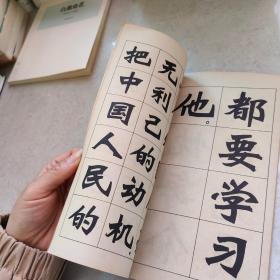 都要学习
他。
无利己的动机，
把中国人民的